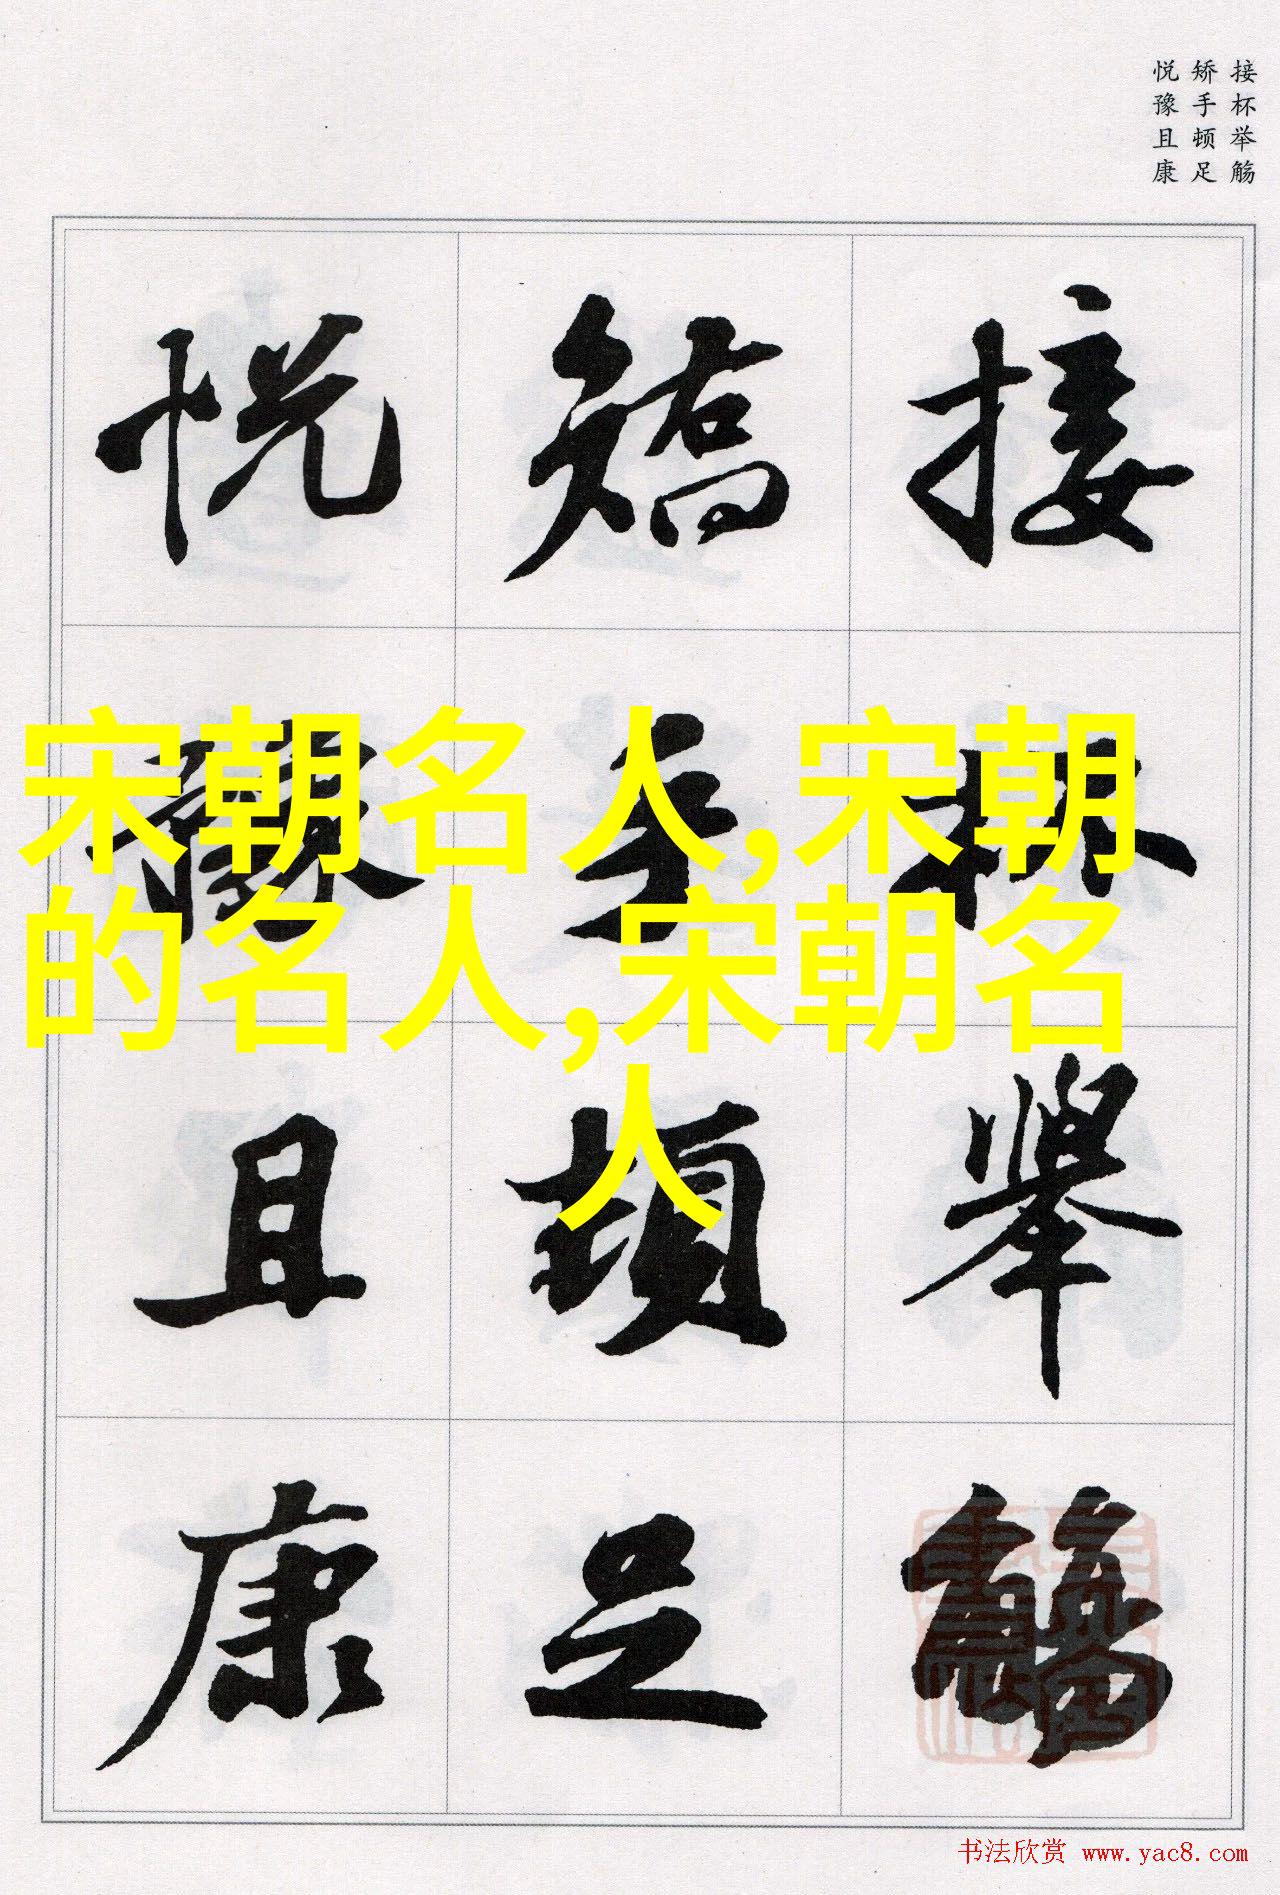 接杯举觞
矫手顿足
悦豫且康
接杯舉觴
矯手頓足
悦豫且康
宋朝名人,宋朝
的名人,宋朝名
人
书法欣赏 www.yac8.com